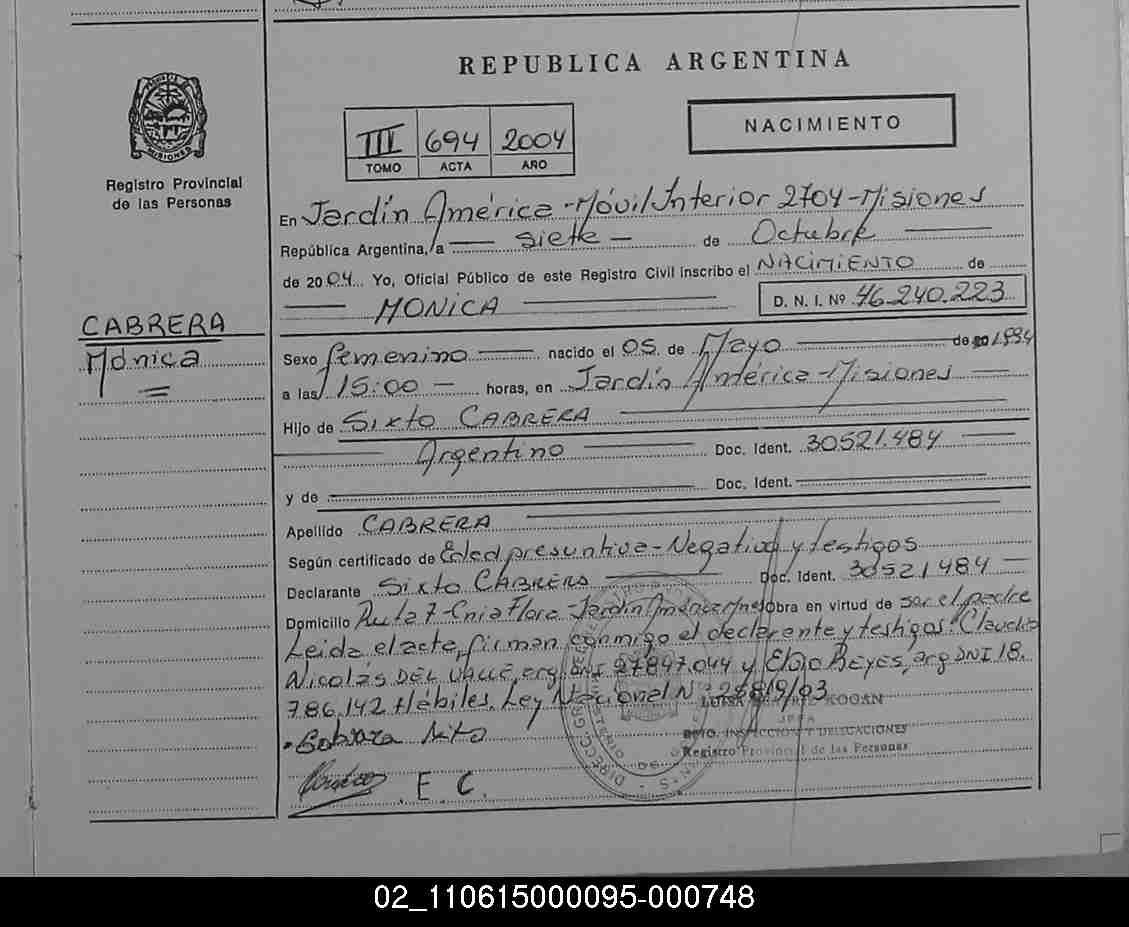 REPUBLICA ARGENTINA
MISIONES
Registro Provincial
de las Personas
III 694 2004
TOMO ACTA AÑO
NACIMIENTO
En Jardín América - Móvil Interior 2704 - Misiones
República Argentina, a — siete — de Octubre —
de 2004 Yo, Oficial Público de este Registro Civil inscribo el NACIMIENTO de
— MONICA —
D. N. I. Nº 46.240.223
CABRERA
Mónica
=
Sexo femenino — nacido el 05 de Mayo — de 1994
a las 15:00 — horas, en Jardín América - Misiones —
Hijo de Sixto CABRERA —
— Argentino — Doc. Ident. 30521.484 —
y de — Doc. Ident. —
Apellido CABRERA —
Según certificado de Edad presuntiva - Negativa y testigos
Declarante Sixto CABRERA — Doc. Ident. 30521484 —
Domicilio Ruta 7 - Cnia Flora - Jardín América obra en virtud de ser el padre
Leída el acta, firman conmigo el declarante y testigos: Claudio
Nicolás DEL VALLE, arg DNI 27847.044 y REYES, arg DNI 18.
786.142 Hábiles. Ley Nacional Nº
KOGAN
JEFA
DPTO. INSPECCION Y DELEGACIONES
Registro Provincial de las Personas
E C.
02_110615000095-000748